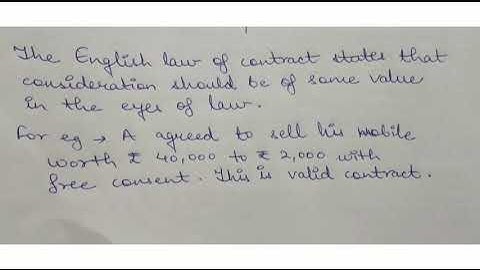 The English law of contract states that
consideration should be of some value
in the eyes of law.
For eg → A agreed to sell his mobile
worth ₹ 40,000 to ₹ 2,000 with
free consent. This is valid contract.